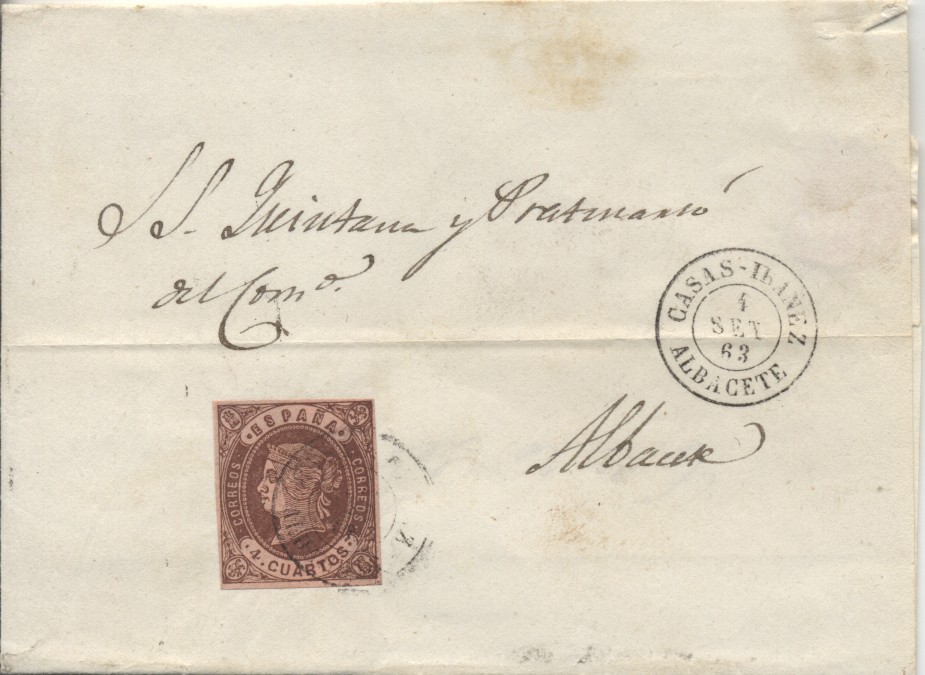 S S. Quintana y
del Com.º
CASAS-IBAÑEZ
4
SET
63
ALBACETE
Albacete
ESPAÑA
CORREOS
CORREOS
4 CUARTOS